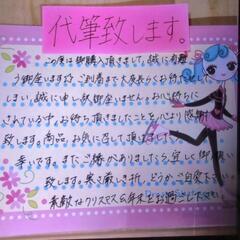 代筆致します。
この度は御購入頂きまして、誠に有難
う御座います。ご到着まで大変長らくお待たせして
しまい、誠に申し訳御座いません。お心待ちに
されている中、お待ち頂きましたことを心より感謝
致します。商品、お気に召して頂けましたら
幸いです。またご縁がありましたら宜しく御願い
致します。寒さ厳しき折、どうかご自愛下さい
素敵なクリスマス&年末をお過ごし下さいませ